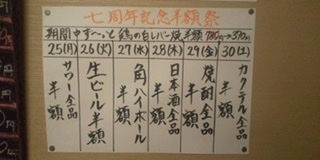 七周年記念半額祭
期間中ず～っと 鶏の白レバー焼 半額 780円→390円
25(月) 26(火) 27(水) 28(木) 29(金) 30(土)
サワー全品半額
生ビール半額
角ハイボール半額
日本酒全品半額
焼酎全品半額
カクテル全品半額